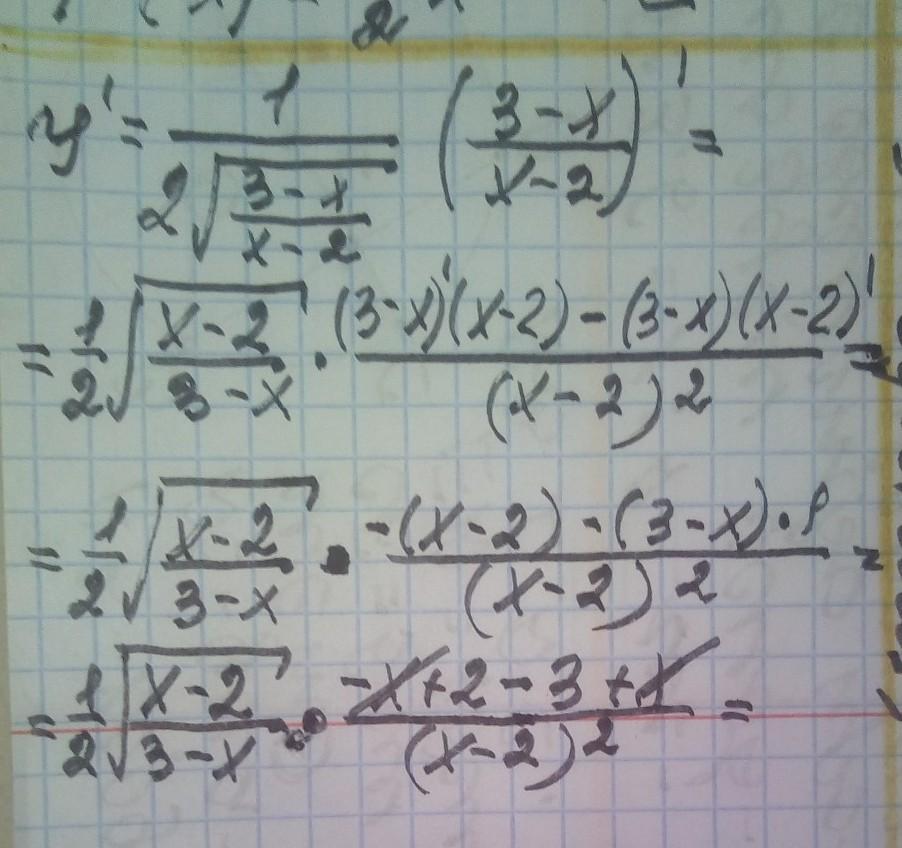 y' = \frac{1}{2\sqrt{\frac{3-x}{x-2}}} \left(\frac{3-x}{x-2}\right)' =
= \frac{1}{2}\sqrt{\frac{x-2}{3-x}} \cdot \frac{(3-x)'(x-2)-(3-x)(x-2)'}{(x-2)^2} =
= \frac{1}{2}\sqrt{\frac{x-2}{3-x}} \cdot \frac{-(x-2)-(3-x)\cdot 1}{(x-2)^2} =
= \frac{1}{2}\sqrt{\frac{x-2}{3-x}} \cdot \frac{-x+2-3+x}{(x-2)^2} =